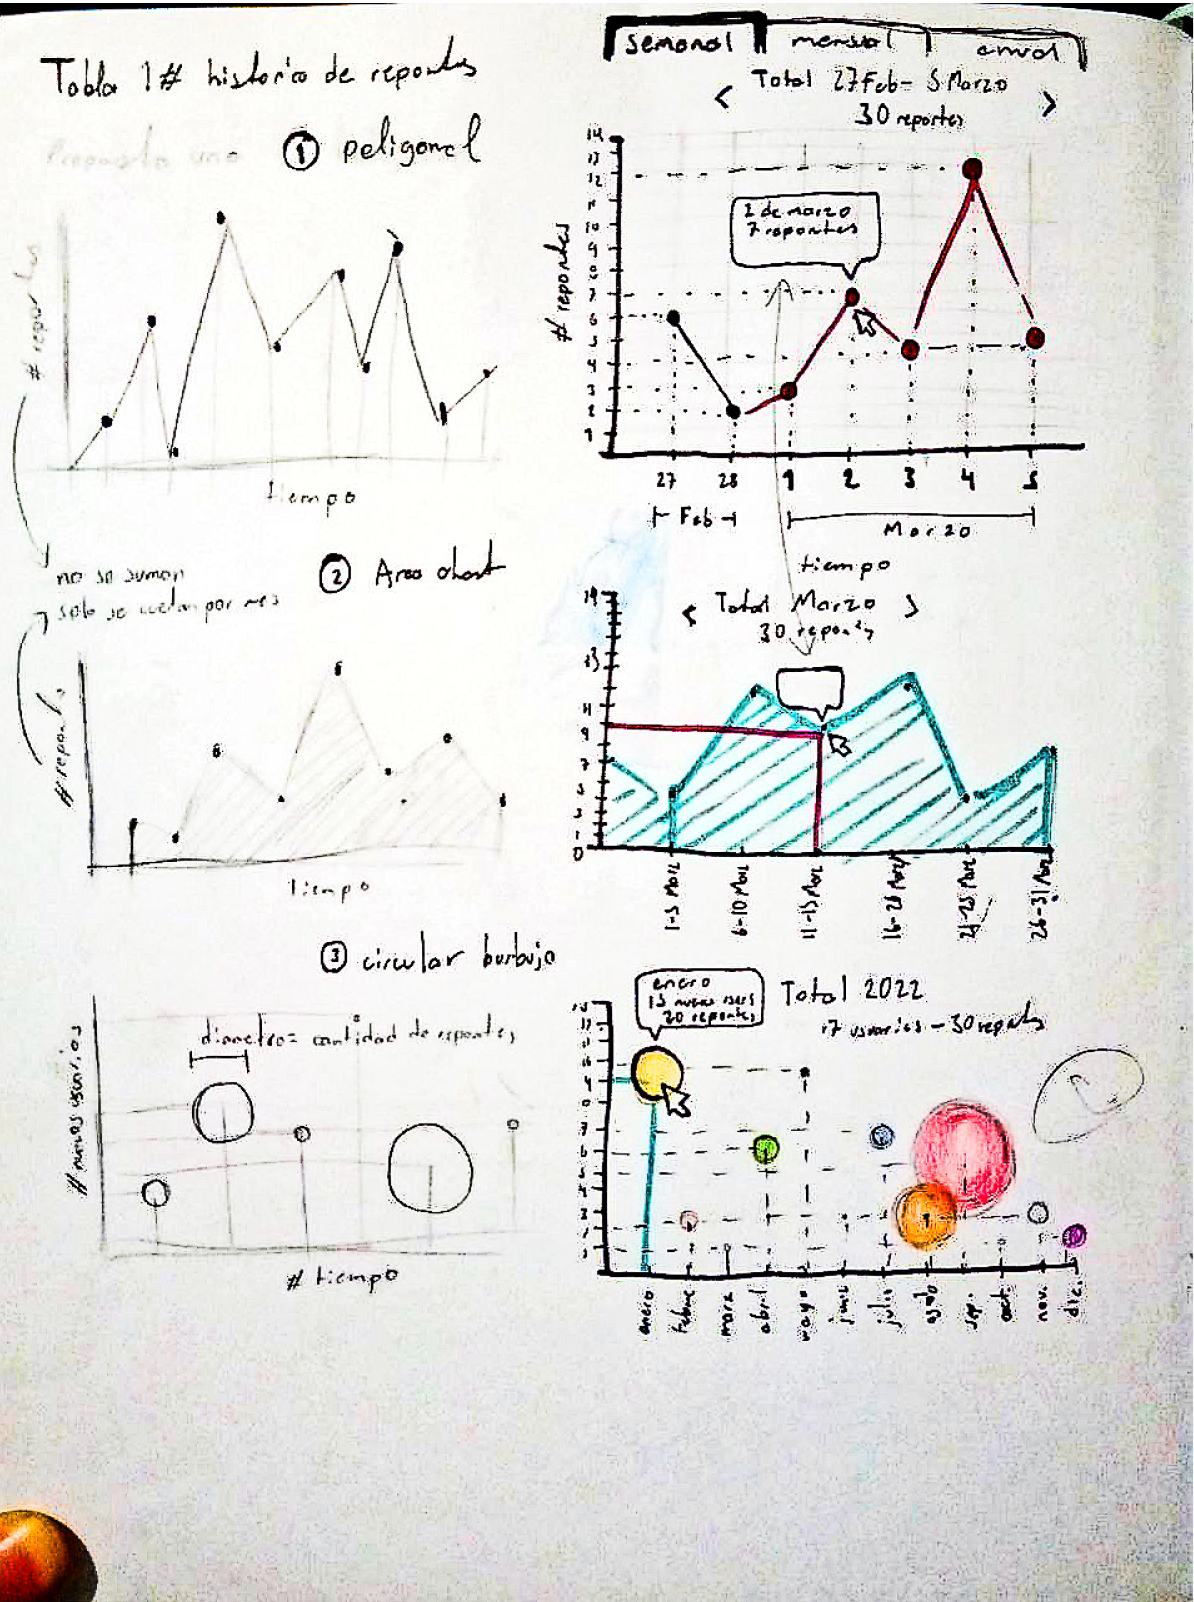 Tabla 1# historico de reportes
① poligonal
# reportes
tiempo
no se suman
solo se cuentan por mes
② Area chart
# reportes
tiempo
③ circular burbuja
diametro = cantidad de reportes
# nuevos usuarios
# tiempo
semanal mensual anual
< Total 27 Feb - 5 Marzo >
30 reportes
14
13
12
11
10
9
8
7
6
5
4
3
2
1
# reportes
2 de marzo
7 reportes
27 28 1 2 3 4 5
Feb Marzo
tiempo
< Total Marzo >
30 reportes
13
11
9
7
5
3
1
0
1-5 Marz 6-10 Marz 11-15 Marz 16-20 Marz 21-25 Marz 26-31 Marz
enero
13 nuevos users
20 reportes
Total 2022
17 usuarios - 30 reportes
enero febre marz abril mayo juni julio agsto sep. oct. nov. dic.